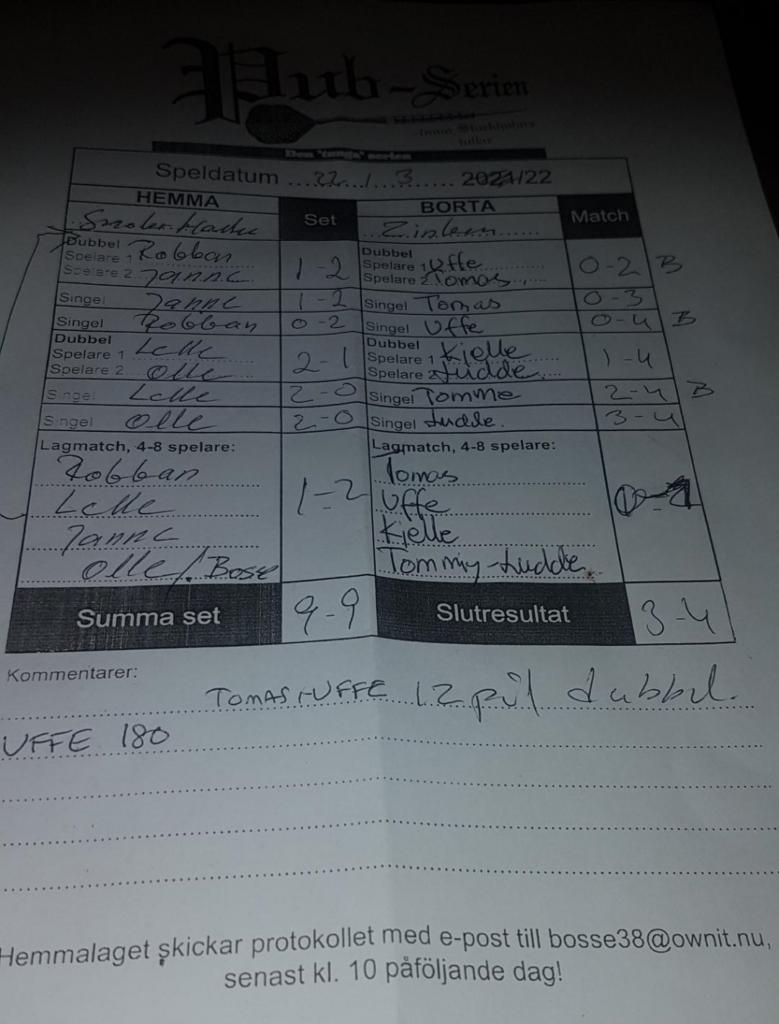 Pub-Serien
Den "tunga" serien
Speldatum 22 / 3 2021/22
HEMMA Set BORTA Match
Dubbel
Spelare 1 Robban
Spelare 2 Janne 1-2 Dubbel
Spelare 1 Uffe
Spelare 2 Tomas 0-2 B
Singel Janne 1-2 Singel Tomas 0-3
Singel Robban 0-2 Singel Uffe 0-4 B
Dubbel
Spelare 1 Lelle
Spelare 2 Olle 2-1 Dubbel
Spelare 1 Kjelle
Spelare 2 Ludde 1-4
Singel Lelle 2-0 Singel Tomme 2-4 B
Singel Olle 2-0 Singel Ludde. 3-4
Lagmatch, 4-8 spelare: Lagmatch, 4-8 spelare:
Robban Tomas
Lelle 1-2 Uffe
Janne Kjelle
Olle/Bosse Tommy-Ludde
Summa set 9-9 Slutresultat 3-4
Kommentarer:
TOMAS-UFFE 12 pil dubbel.
UFFE 180
Hemmalaget skickar protokollet med e-post till bosse38@ownit.nu,
senast kl. 10 påföljande dag!